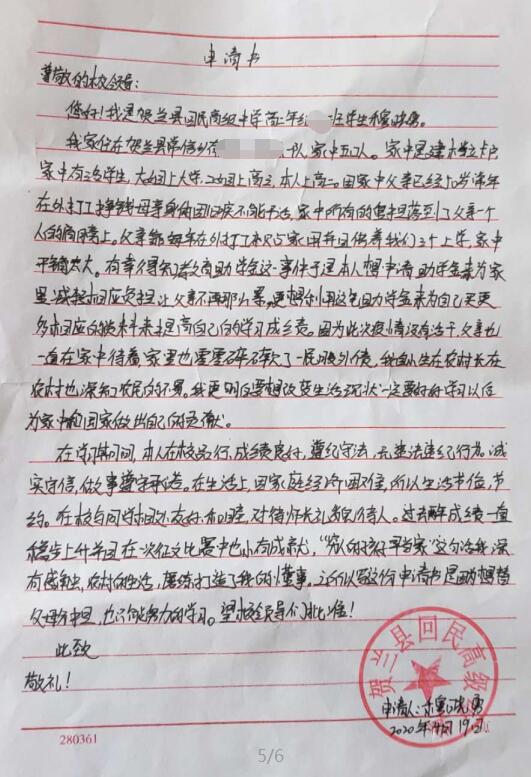 申请书
尊敬的校领导:
您好!我是贺兰县回民高级中学高二年级 班学生
我家住在贺兰县常信乡 队,家中五口人。家中是建档立卡户
家中有三名学生,大姐上大学,二姐上高三,本人上高二。因家中父亲已经 岁常年
在外打工挣钱母亲身体因旧疾不能干活,家中所有的重担落到了父亲一个
人的肩膀上。父亲能每年在外打工 家用并且供着我们三个上学,家中
开销太大。有幸得知教育局助学金这一事件于是本人想申请助学金来为家
里减轻相应负担,让父亲不再那么累。更想利用这笔助学金来为自己买更
多相应的 来提高自己的学习成绩。因为此次疫情没有活干,父亲也
一直在家中待着,家里也零零碎碎欠了一屁股外债,我自小生在农村长在
农村也深知农民的不易。我更明白要想改变生活现状一定要好好学习以后
为家中和国家做出自己的贡献。
在 期间,本人在校品行,成绩良好,遵纪守法,无违法违纪行为。诚
实守信,做事遵守承诺。在生活上,因家庭经济困难,所以生活节俭,节
约。在校与同学相处友好和睦,对待师长礼貌待人。过去 成绩一直
稳步上升并且在一次征文比赛中也小有成就,“穷人的孩子早当家”这句话我深
有感触,农村的生活,磨练打造了我的懂事。之所以写这份申请书是因为想替
父母分担,也只能努力的学习。望校领导们批准!
此致
敬礼!
申请人:
2020年 月19日
贺兰县回民高级
280361
5/6